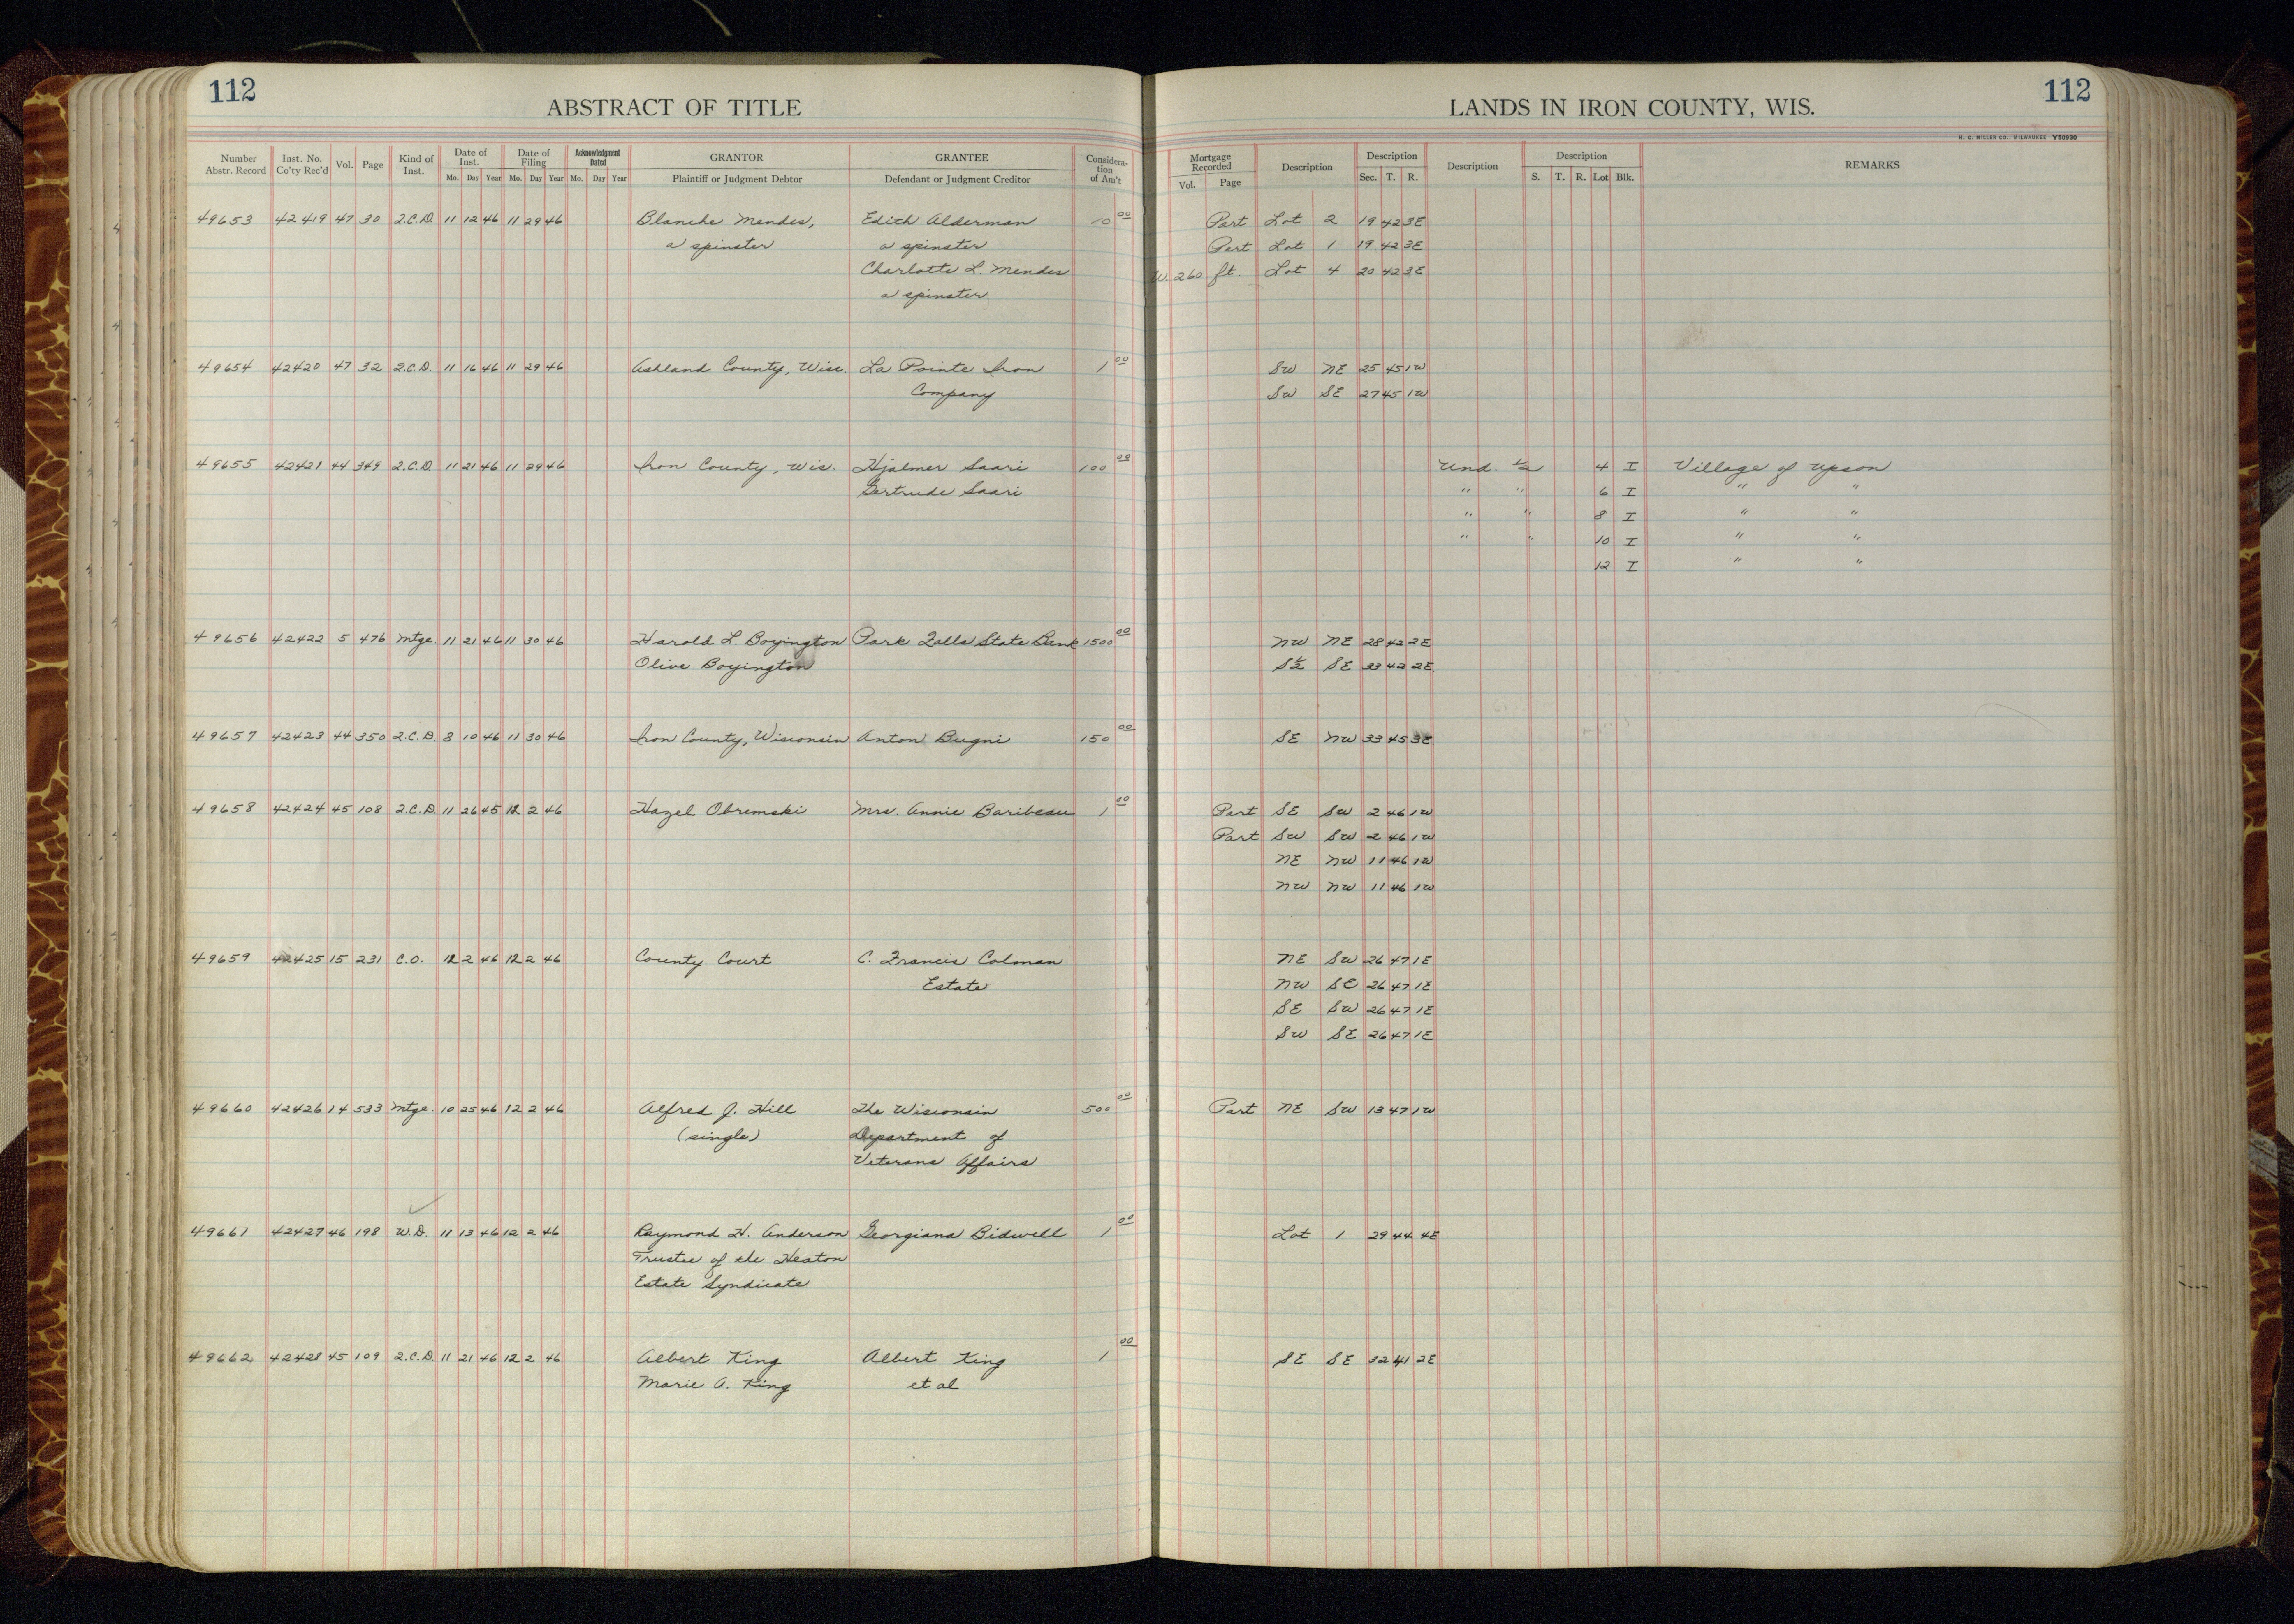 112
ABSTRACT OF TITLE
LANDS IN IRON COUNTY, WIS.
112
H. C. MILLER CO., MILWAUKEE Y50930
Number Abstr. Record Inst. No. Co'ty Rec'd Vol. Page Kind of Inst. Date of Inst. Mo. Day Year Date of Filing Mo. Day Year Acknowledgment Dated Mo. Day Year GRANTOR Plaintiff or Judgment Debtor GRANTEE Defendant or Judgment Creditor Considera-tion of Am't Mortgage Recorded Vol. Page Description Description Sec. T. R. Description Description S. T. R. Lot Blk. REMARKS
49653 42419 47 30 Q.C.D. 11 12 46 11 29 46 Blanche Mendes, Edith Alderman 10 00 Part Lot 2 19 42 3E
a spinster a spinster Part Lot 1 19 42 3E
Charlotte L. Mendes W. 260 ft. Lot 4 20 42 3E
a spinster
49654 42420 47 32 Q.C.D. 11 16 46 11 29 46 Ashland County, Wisc. La Pointe Iron 1 00 SW NE 25 45 1W
Company SW SE 27 45 1W
49655 42421 44 349 Q.C.D. 11 21 46 11 29 46 Iron County, Wis. Hjalmer Saari 100 00 Und. 1/2 4 I Village of Upson
Gertrude Saari " " 6 I " "
" " 8 I " "
" " 10 I " "
12 I " "
49656 42422 5 476 Mtge. 11 21 46 11 30 46 Harold L. Boyington Park Falls State Bank 1500 00 NW NE 28 42 2E
Olive Boyington S1/2 SE 33 42 2E
49657 42423 44 350 Q.C.D. 8 10 46 11 30 46 Iron County, Wisconsin Anton Bugni 150 00 SE NW 33 45 3E
49658 42424 45 108 Q.C.D 11 26 45 12 2 46 Hazel Obremski Mrs. Annie Baribeau 1 00 Part SE SW 2 46 1W
Part SW SW 2 46 1W
NE NW 11 46 1W
NW NW 11 46 1W
49659 42425 15 231 C.O. 12 2 46 12 2 46 County Court C. Francis Colman NE SW 26 47 1E
Estate NW SE 26 47 1E
SE SW 26 47 1E
SW SE 26 47 1E
49660 42426 14 533 Mtge. 10 25 46 12 2 46 Alfred J. Hill The Wisconsin 500 00 Part NE SW 13 47 1W
(single) Department of
Veterans Affairs
49661 42427 46 198 W.D. 11 13 46 12 2 46 Raymond H. Anderson Georgiana Bidwell 1 00 Lot 1 29 44 4E
Trustee of the Heaton
Estate Syndicate
49662 42428 45 109 Q.C.D. 11 21 46 12 2 46 Albert King Albert King 1 00 SE SE 32 41 2E
Marie A. King et al